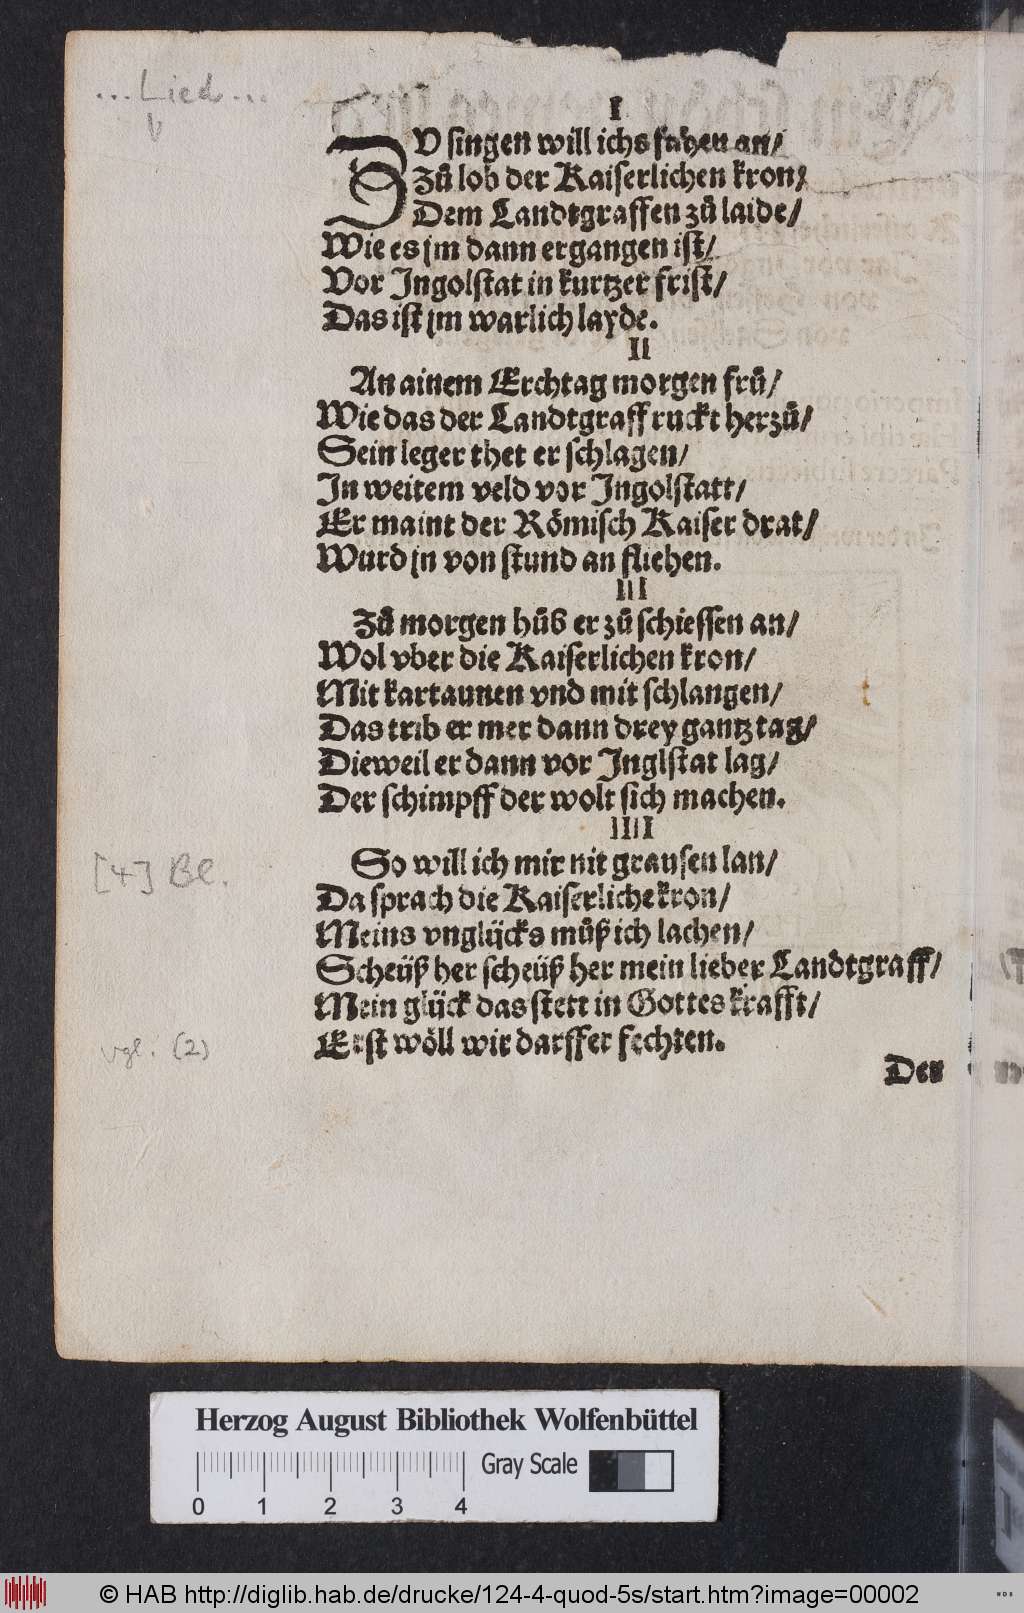 ... Lied ...
I
ZV singen will ichs fahen an/
Zů lob der Kaiserlichen kron/
Dem Landtgraffen zů laide/
Wie es jm dann ergangen ist/
Vor Jngolstat in kurtzer frist/
Das ist jm warlich layde.
II
An ainem Erchtag morgen frů/
Wie das der Landtgraff ruckt herzů/
Sein leger thet er schlagen/
Jn weitem veld vor Jngolstatt/
Er maint der Römisch Kaiser drat/
Wurd jn von stund an fliehen.
III
Zů morgen hůb er zů schiessen an/
Wol vber die Kaiserlichen kron/
Mit kartaunen vnd mit schlangen/
Das trib er mer dann drey gantz tag/
Dieweil er dann vor Jnglstat lag/
Der schimpff der wolt sich machen.
IIII
So will ich mir nit grausen lan/
Da sprach die Kaiserliche kron/
Meins vnglücks můß ich lachen/
Scheüß her scheüß her mein lieber Landtgraff/
Mein glück das stett in Gottes krafft/
Erst wöll wir darffer fechten.
Der
[4] Bl.
vgl. (2)
Herzog August Bibliothek Wolfenbüttel
0 1 2 3 4 Gray Scale
© HAB http://diglib.hab.de/drucke/124-4-quod-5s/start.htm?image=00002